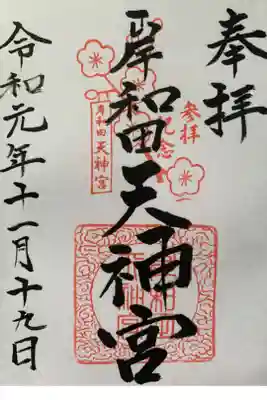 奉拝
参拝
記念
岸和田天神宮
岸和田天神宮
令和元年十一月十九日